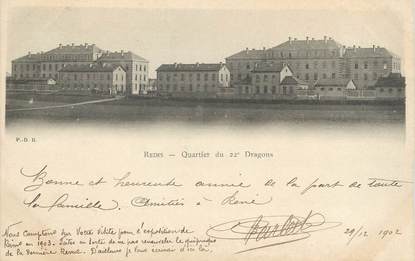 P.-D. R.
REIMS — Quartier du 22e Dragons
Bonne et heureuse année de la part de toute
la famille. Amitiés à René
29/12 1902
Nous comptons sur votre visite pour l'exposition de
Reims en 1903. Faites en sorte de ne pas renouveler le quiproquo
de la dernière Revue. D'ailleurs je leur écrirai d'ici là.